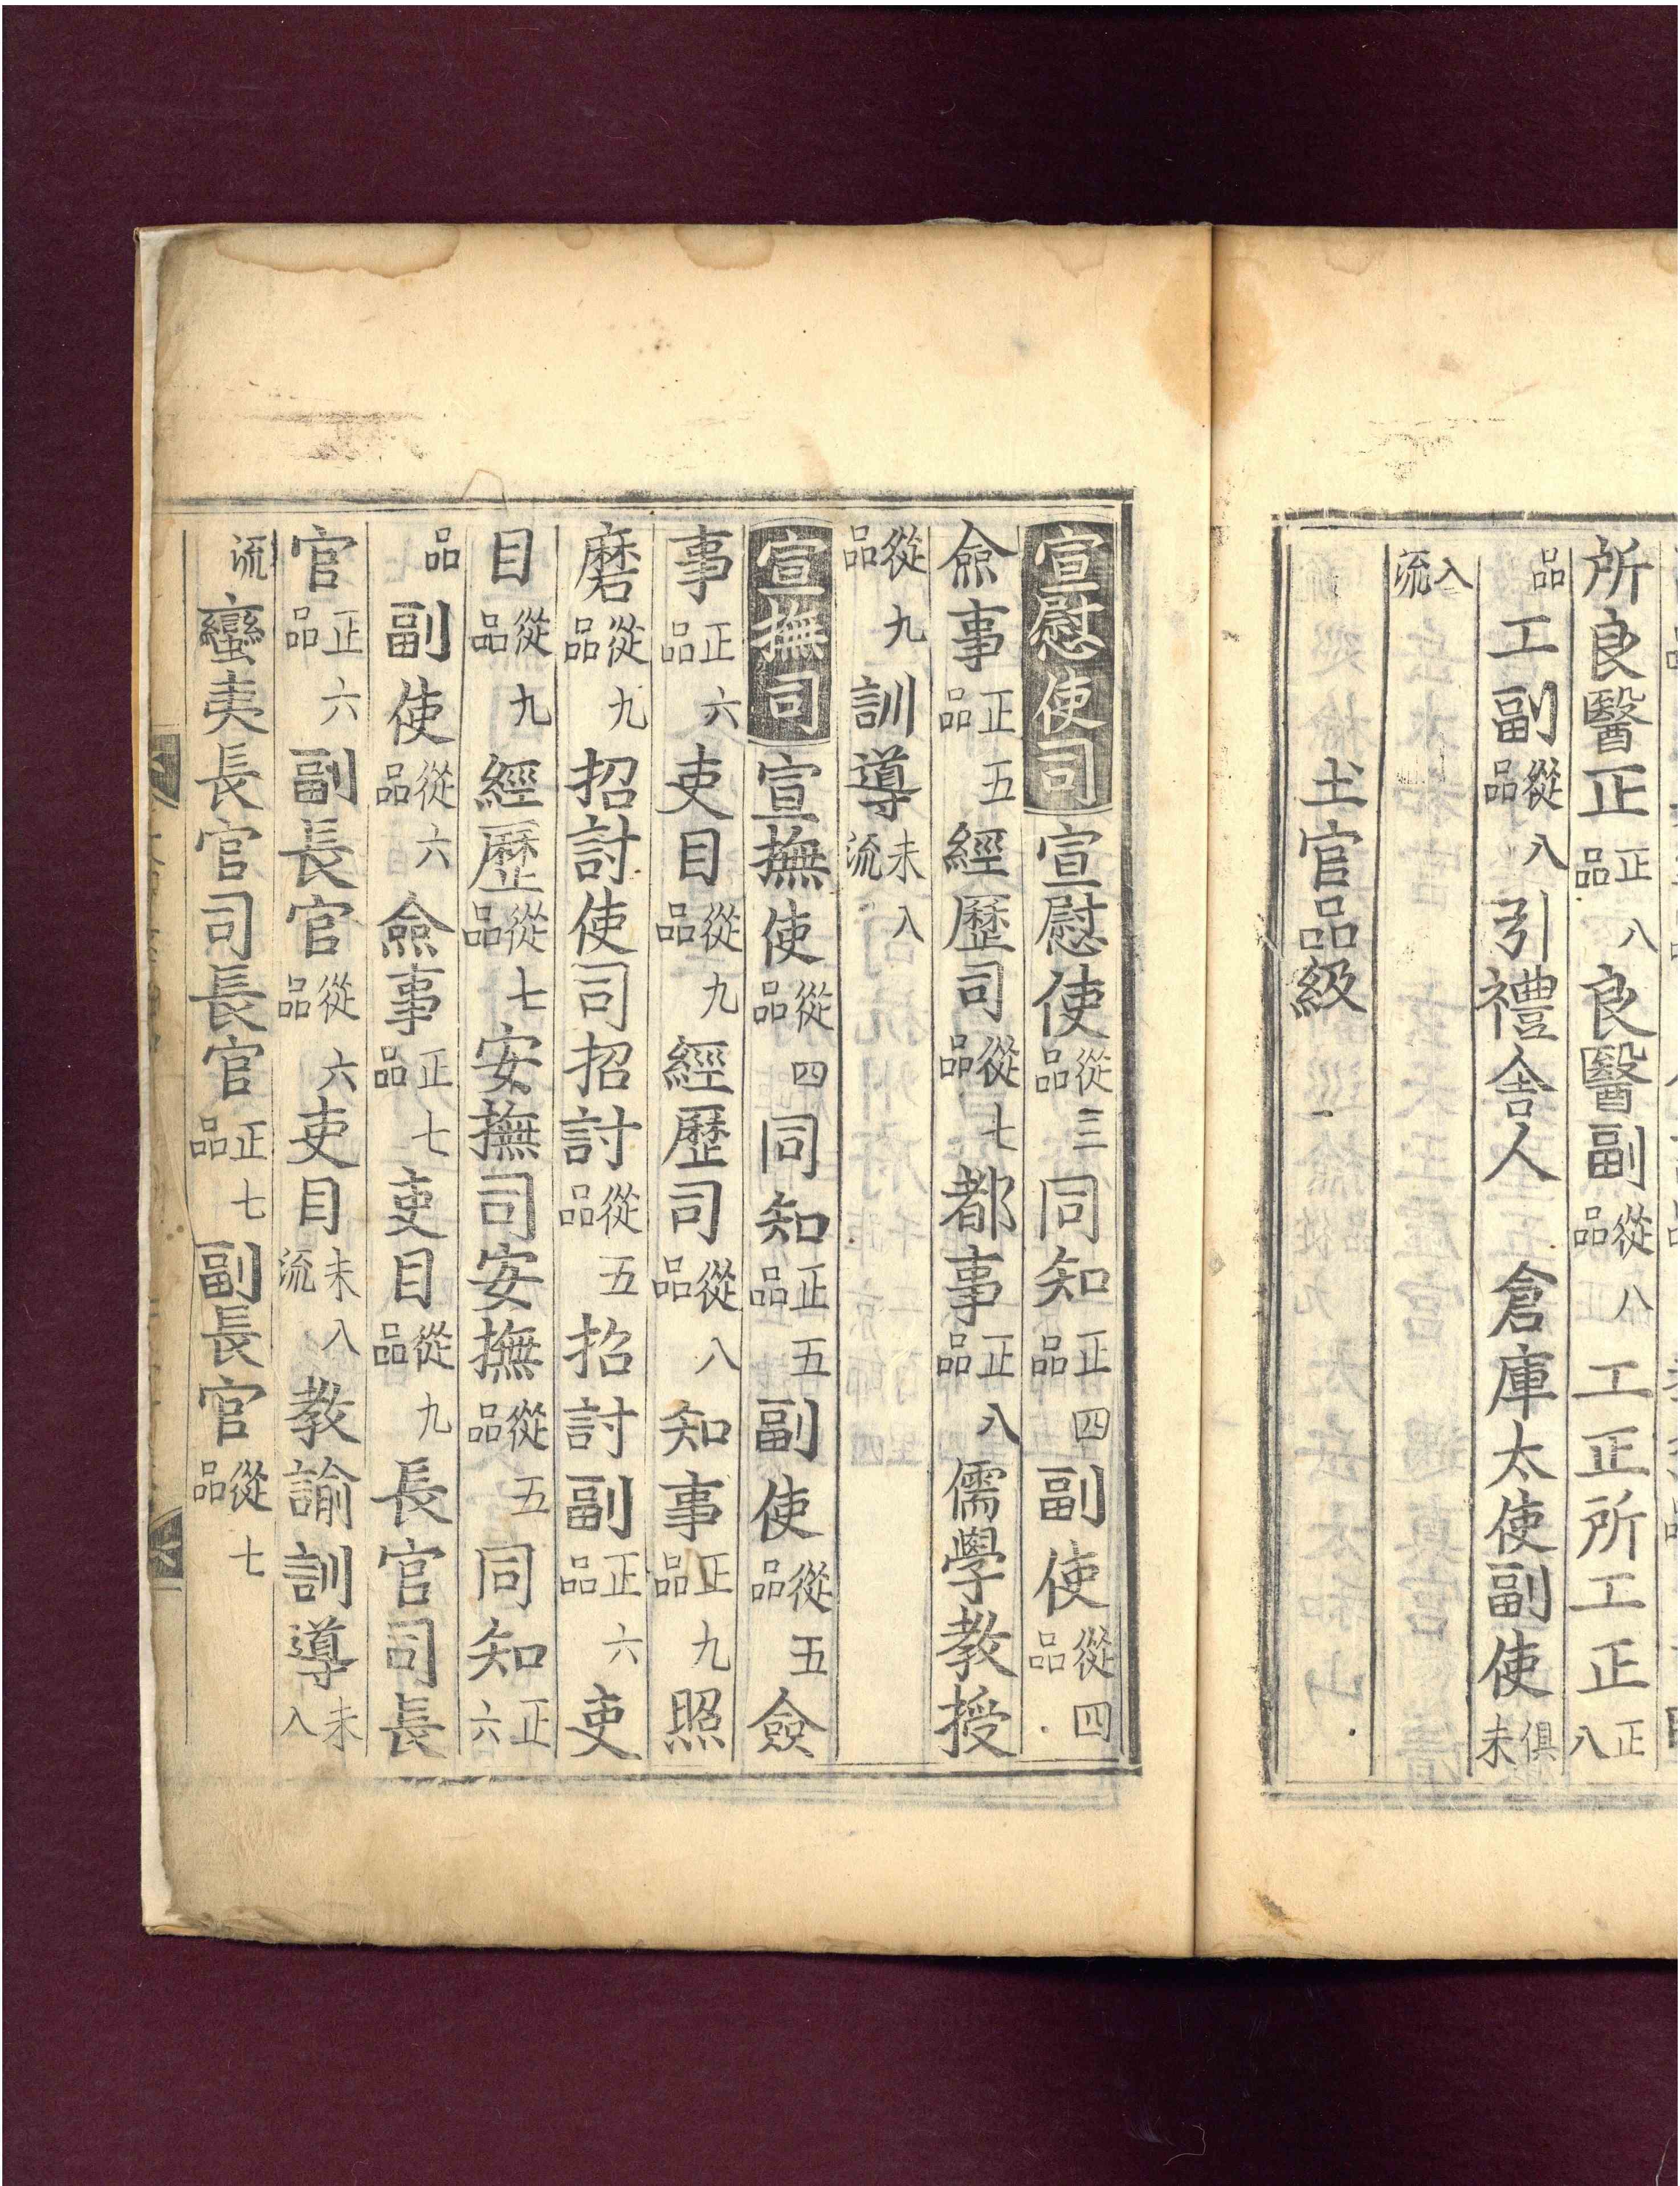 所良醫正正八品良醫副從八品工正所工正正八
品工副從八品引禮舍人 倉庫太使副使俱未
入流
土官品級
宣慰使司宣慰使從三品同知正四品副使從四品
僉事正五品經歷司從七品都事正八品儒學教授
從九品訓導未入流
宣撫司宣撫使從四品同知正五品副使從五品僉
事正六品吏目從九品經歷司從八品知事正九品照
磨從九品招討使司招討從五品招討副正六品吏
目從九品經歷從七品安撫司安撫從五品同知正六
品副使從六品僉事正七品吏目從九品長官司長
官正六品副長官從六品吏目未入流教諭訓導未入
流蠻夷長官司長官正七品副長官從七品